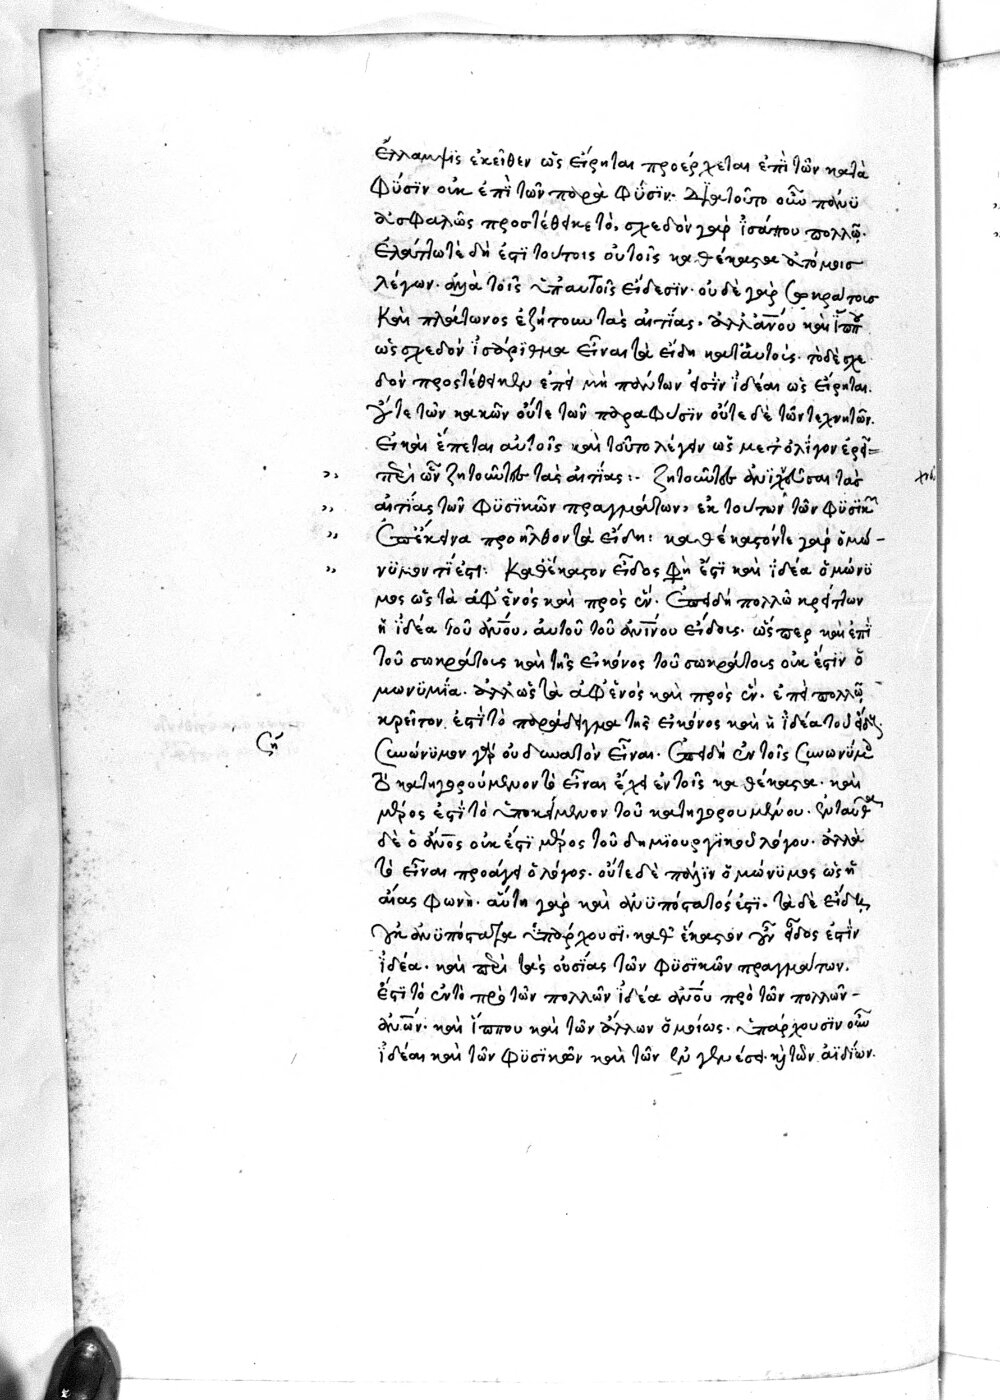 ἔλλαμψϊς ἐκεῖθεν ὡς εἴρηται προέρχεται ἐπὶ τῶν κατὰ
φύσϊν οὐκ ἐπὶ τῶν παρὰ φύσϊν. διατοῦτο οὖν πάνυ
ἀσφαλῶς προστέθηκε τὸ, σχεδὸν γὰρ ἴσα που πολλῶ.
ἐλάττω τὲ δὴ ἐστὶ τούτοις οὐ τοῖς καθέκαστα ἀτόμοις
λέγων. ἀλλὰ τοῖς ὑπ αὐτοῖς εἴδεσϊν. οὐδὲ γὰρ σωκράτους
καὶ πλάτωνος ἐζήτουν τὰς αἰτίας. ἀλλ ἀνου καὶ ἵππου
ὡς σχεδὸν ἰσάριθμα εἶναι τὰ εἴδη κατ αὐτούς. τὸ δὲ σχε
δὸν προστέθηκεν ἐπεὶ μὴ πάντων εἰσὶν ἰδέαι ὡς εἴρηται.
οὔτε τῶν κακῶν οὔτε τῶν παρα φύσιν οὔτε δὲ τῶν τεχνητῶν.
εἰ καὶ ἕπεται αὐτοῖς καὶ τοῦτο λέγειν ὡς μετ ὀλίγον ἐρεῖ=
περὶ ὧν ζητοῦντες τὰς αἰτίας:- ζητοῦντες τὰς
αἰτίας τῶν φϋσϊκῶν πραγμάτων, ἐκ τούτων τῶν φϋσϊκῶν
ἐπ ἐκεῖνα προῆλθον τὰ εἴδη: καθέκαστόν τε γὰρ ὁμώ-
νϋμόν τϊ ἐστϊ: καθ ἕκαστον εἶδος φησὶ ἐστὶ καὶ ἰδέα ὁμώνϋ
μος ὡς τὰ ἀφ ἑνὸς καὶ πρὸς ἕν. ἐπειδὴ πολλῶ κρείττων
ἡ ἰδέα τοῦ ἀνου, αὐτοῦ τοῦ ἀνίνου εἴδους. ὥσπερ καὶ ἐπὶ
τοῦ σωκράτους καὶ τῆς εἰκόνος τοῦ σωκράτους οὐκ ἔστϊν ὁ
μωνϋμία. ἀλλ ὡς τὰ ἀφ ἑνὸς καὶ πρὸς ἕν. ἐπεὶ πολλῶ
κρεῖττον ἐστὶ τὸ παράδειγμα τῆς εἰκόνος καὶ ἡ ἰδέα τοῦ εἴδους
συνώνυμον γὰρ οὐ δυνατὸν εἶναι. ἐπειδὴ ἐν τοῖς συνωνύμοις
τὸ κατηγορούμενον τὸ εἶναι ἔχει ἐν τοῖς καθέκαστα. καὶ
μέρος ἐστὶ τὸ ὑποκείμενον τοῦ κατηγορουμένου. ἐνταῦθα
δὲ ὁ ἀνος οὐκ ἔστι μέρος τοῦ δημϊουργϊκοῦ λόγου. ἀλλὰ
τὸ εἶναι προάγει ὁ λόγος. οὔτε δὲ πάλϊν ὁμώνϋμος ὡς ἡ
αἴας φωνὴ. αὕτη γὰρ καὶ ἀνϋπόστατός ἐστϊ. τὰ δὲ εἴδη
οὐκ ἀνϋπόστατα ὑπάρχουσϊ. καθ ἕκαστον οὖν εἶδος ἐστὶν
ἰδέα. καὶ περὶ τὰς οὐσίας τῶν φϋσϊκῶν πραγμάτων.
ἔστϊ τὸ ἓν τὸ πρὸ τῶν πολλῶν ἰδέα ἀνου πρὸ τῶν πολλῶν-
ἀνων. καὶ ἵππου καὶ τῶν ἄλλων ὁμοίως. ὑπάρχουσϊν οὖν
ἰδέαι καὶ τῶν φϋσϊκῶν καὶ τῶν ἐν γενέσει κὴ τῶν ἀϊδίων.